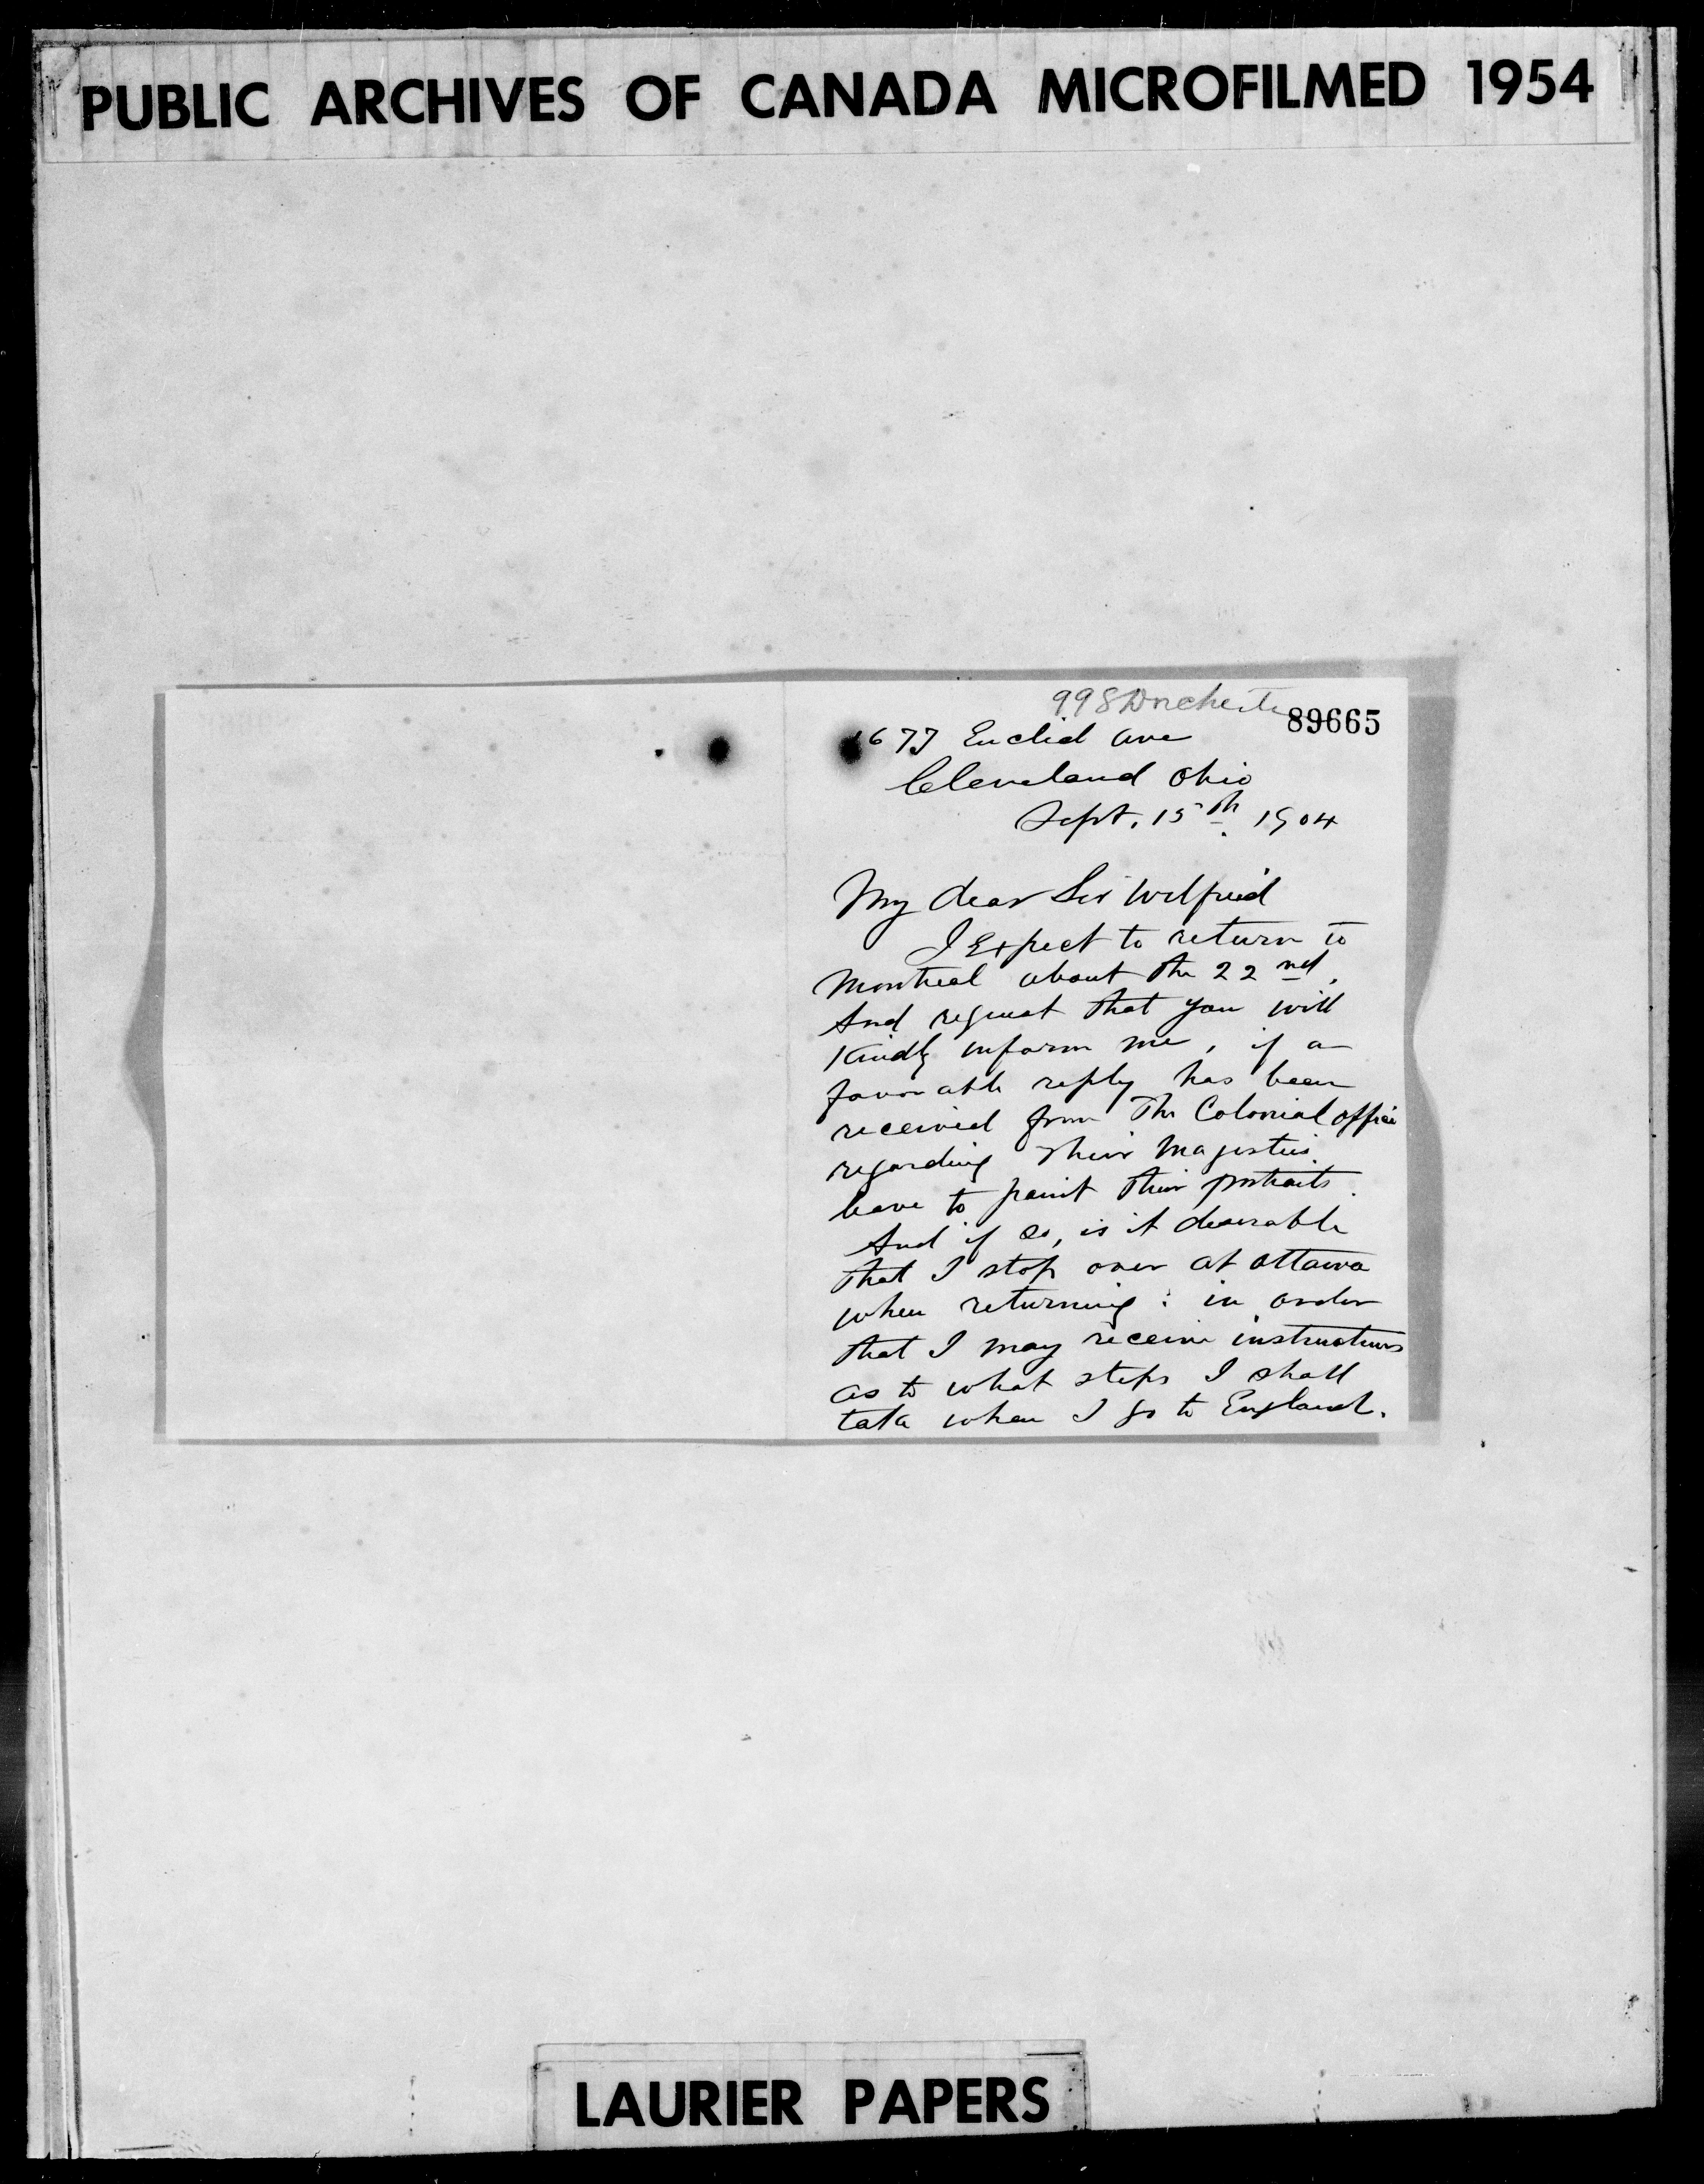 PUBLIC ARCHIVES OF CANADA MICROFILMED 1954
998 Dorchester
89665
1677 Euclid Ave
Cleveland Ohio
Sept. 15th 1904
My dear Sir Wilfrid
I Expect to return to
Montreal about the 22nd,
And request that you will
Kindly inform me, if a
favorable reply has been
received from The Colonial office
regarding Their Majesties
leave to paint their portraits.
And if so, is it desirable
that I stop over at Ottawa
when returning: in order
that I may receive instructions
as to what steps I shall
take when I go to England.
LAURIER PAPERS